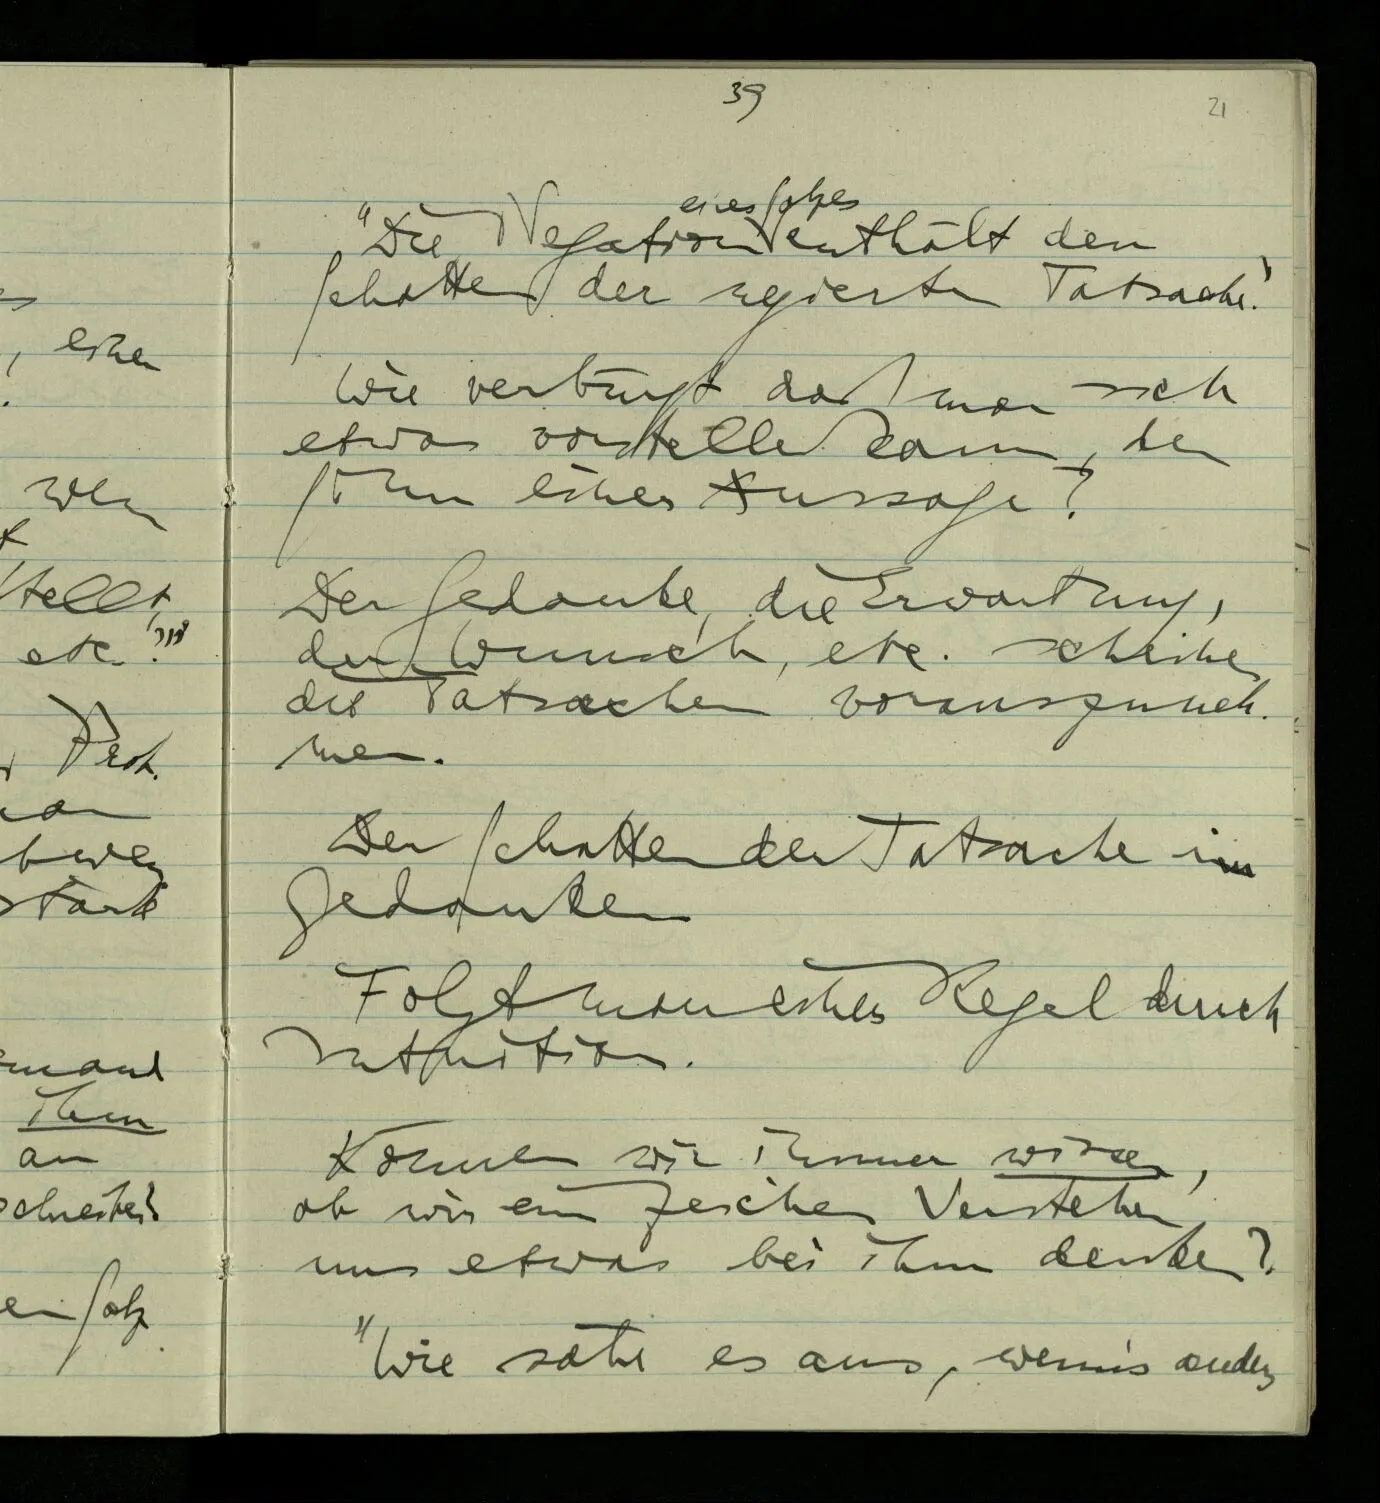 39
21
eines Satzes
"Die Negation enthält den
Schatten der negierten Tatsache."
Wie verbürgt daß man sich
etwas vorstellen kann, den
Sinn einer Aussage?
Der Gedanke, die Erwartung,
der Wunsch, etc. scheinen
die Tatsachen vorauszuneh-
men.
Der Schatten der Tatsache im
Gedanken
Folgt man einer Regel durch
Intuition.
Können wir immer wissen,
ob wir ein Zeichen verstehen
uns etwas bei ihm denken?
"Wie sähe es aus, wenn's anders
einen
wenn
stellt,
etc.
stark
jemand
ihm
an
Satz